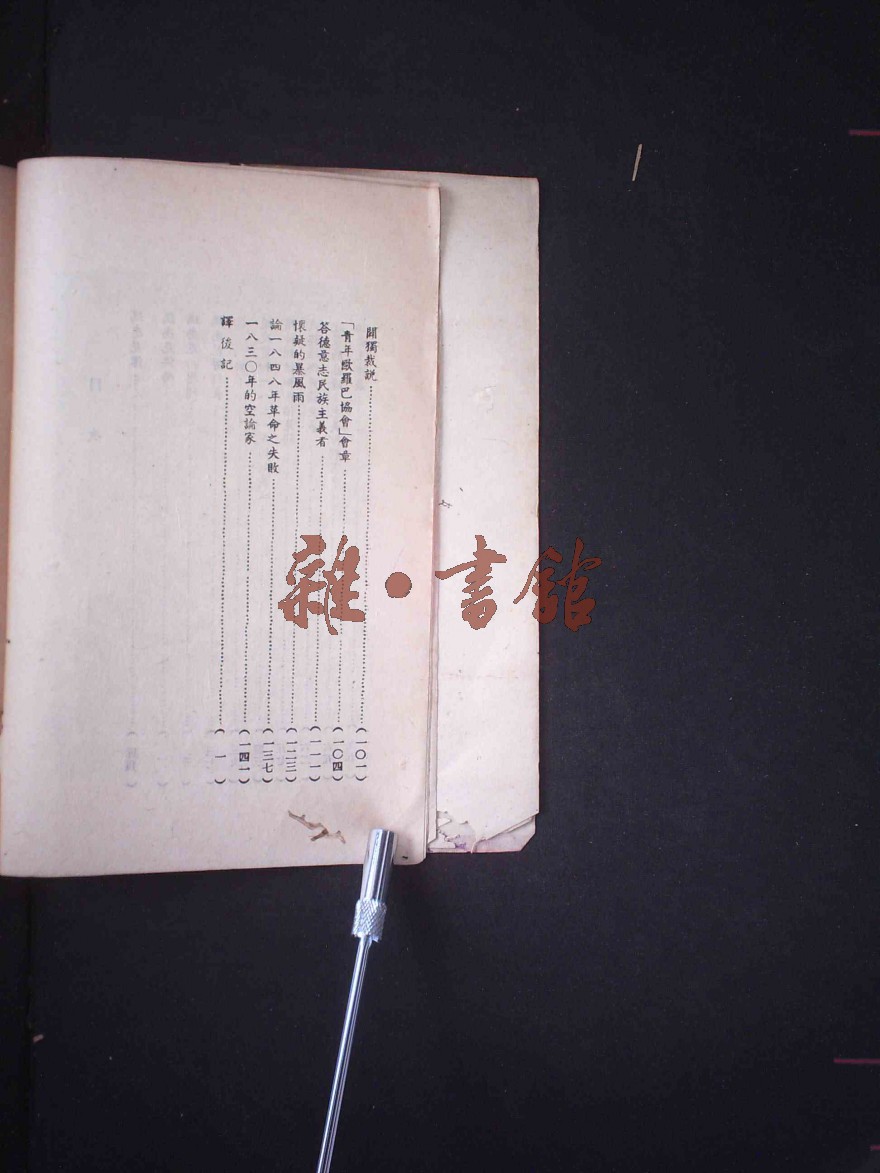 闢獨裁説……(一〇一)
「青年歐羅巴協會」會章……(一〇四)
答德意志民族主義者……(一一一)
懷疑的暴風雨……(一二三)
論一八四八年革命之失敗……(一三七)
一八三〇年的空論家……(一四一)
譯後記……(一)
雜·書館